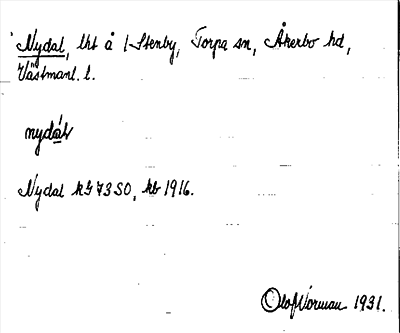 Nydal, lht å 1 Stenby, Torpa sn, Åkerbo hd,
Västmanl. l.
nydáɫ
Nydal kG 73 SO, kb 1916.
Olof Norman 1931.